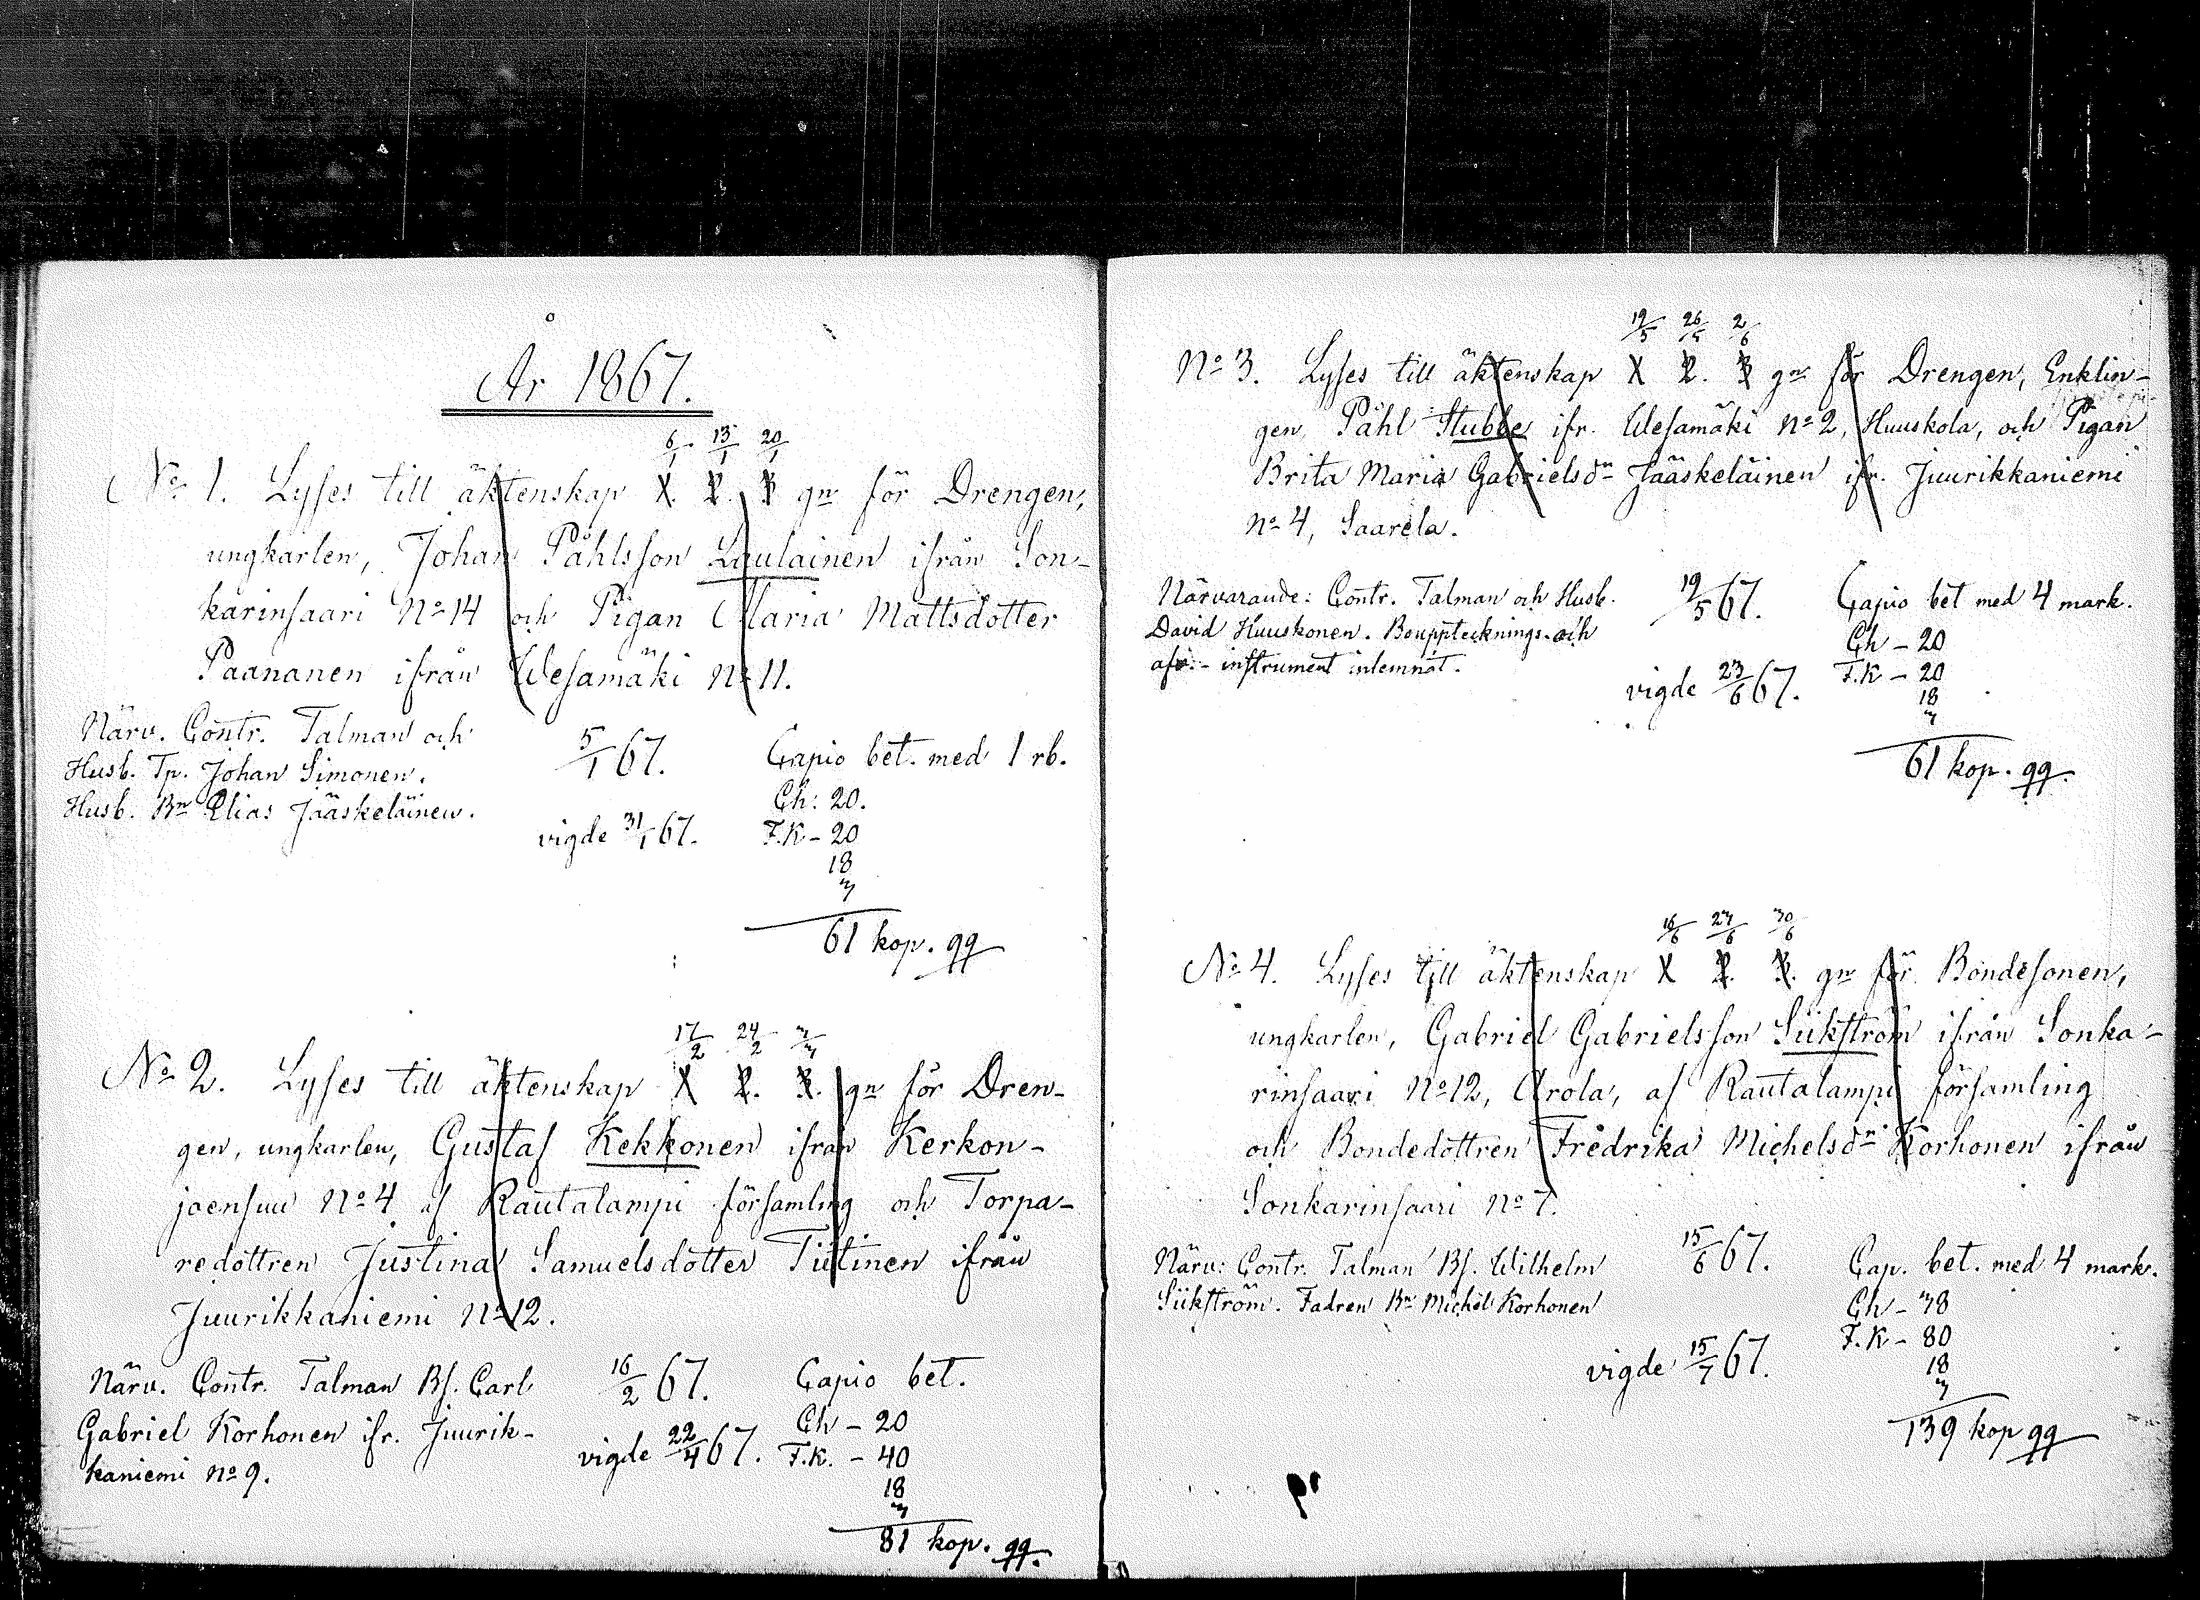 År 1867.
6/1 13/1 20/1
No 1. Lyses till äktenskap 1. 2. 3 gr för Drengen,
ungkarlen, Johan Påhlsson Laulainen ifrån Son-
karinsaari No 14 och Pigan Maria Mattsdotter
Paananen ifrån Wesamäki No 11.
Närv. Contr. Talman och
Husb. Tp. Johan Simonen.
Husb. Bn Elias Jääskeläinen.
5/1 67.
vigde 31/1 67.
Capio bet. med 1 rb.
Ch: 20.
F.K - 20
18
3
61 kop. qq
17/2 24/2 3/3
No 2. Lyses till äktenskap 1 2. 3. gr för Dren-
gen, ungkarlen, Gustaf Kekkonen ifrån Kerkon-
joensuu No 4 af Rautalampi församling och Torpa-
redottren Justina Samuelsdotter Tiitinen ifrån
Juurikkaniemi No 12.
Närv. Contr. Talman Bs. Carl
Gabriel Korhonen ifr. Juurik-
kaniemi No 9.
16/2 67.
vigde 22/4 67.
Capio bet.
Ch - 20
F.K. - 40
18
3
81 kop. qq.
19/5 26/5 2/6
No 3. Lyses till äktenskap 1 2. 3 gr för Drengen, Enklin-
gen, Påhl Stubbe ifr. Wesamäki No 2, Huuskola, och Pigan
Brita Maria Gabrielsdr Jääskeläinen ifr. Juurikkaniemi
No 4, Saarela.
Närvarande: Contr. Talman och Husb.
David Huuskonen. Bouppteknings- och
afv. - instrument inlemnat.
19/5 67.
vigde 23/6 67.
Capio bet med 4 mark.
Ch - 20
F.K - 20
18
3
61 kop. qq.
16/6 23/6 30/6
No 4. Lyses till äktenskap 1 2. 3. gr för Bondesonen,
ungkarlen, Gabriel Gabrielsson Siikström ifrån Sonka-
rinsaari No 12, Arola, af Rautalampi församling
och Bondedottren Fredrika Michelsdr Korhonen ifrån
Sonkarinsaari No 7.
Närv: Contr. Talman Bs. Wilhelm
Siikström. Fadren Bn Michel Korhonen
15/6 67.
vigde 15/7 67.
Cap. bet. med 4 mark.
Ch - 38
F.K - 80
18
3
139 kop qq